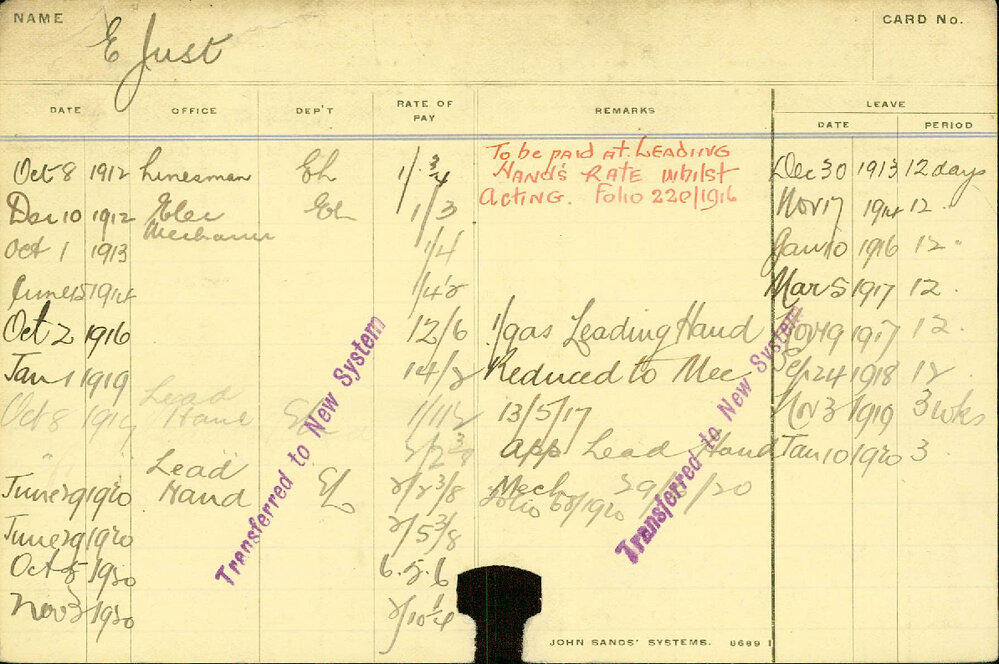 NAME
CARD No.
E Just
DATE OFFICE DEP'T RATE OF PAY REMARKS LEAVE
DATE PERIOD
Oct 8 1912 Linesman 1/ 3/4 To be paid at Leading Dec 30 1913 12 days
Hand's Rate whilst
Acting. Folio 220/1916
Dec 10 1912 Elec 1/3 Nov 17 1914 12
Mechanic
Oct 1 1913 1/4 Jan 10 1916 12 "
June 1914 Mar 5 1917 12
Oct 2 1916 12/6 Leading Hand Nov 19 1917 12
Jan 1 1919 14/2 Reduced to Mec Sep 24 1918 12
Oct 8 1919 Lead Hand 13/5/17 Nov 3 1919 3 wks
App Lead Hand Jan 10 1920 3
June 29 1920 Lead Hand 2/2 3/8 Mech 29/ /20
Folio /1920
June 29 1920 2/5 3/8
Oct 5 1920 6.5.6
Nov 3 1920 2/10 1/4
Transferred to New System
Transferred to New System
JOHN SANDS' SYSTEMS. 8689